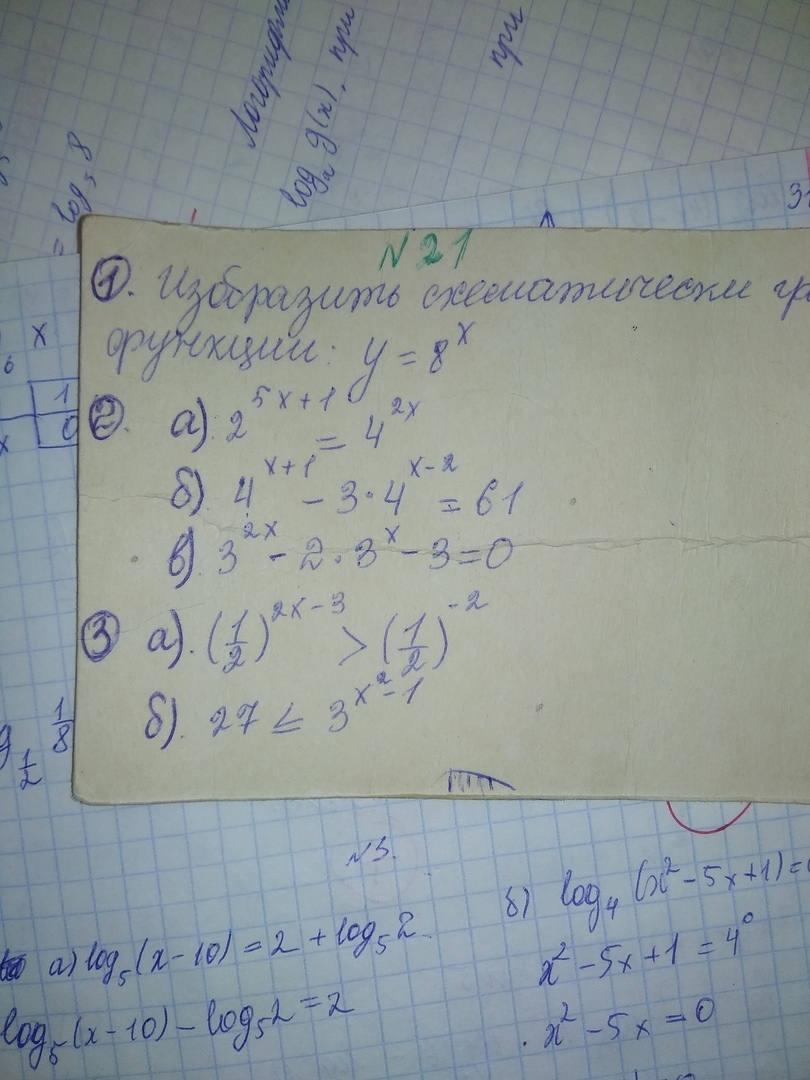 Логарифм
log₂ g(x), при
при
= log₅ 8
31
N 21
1. Изобразить схематически гра
функции: y = 8^x
2. а). 2^(5x+1) = 4^(2x)
б). 4^(x+1) - 3·4^(x-2) = 61
в). 3^(2x) - 2·3^x - 3 = 0
3 а). (1/2)^(2x-3) > (1/2)^(-2)
б). 27 ≤ 3^(x²-1)
x
1
x 0
g_(1/2) 1/8
N3.
а) log₅(x-10) = 2 + log₅2.
log₅(x-10) - log₅2 = 2
б) log₄(x² - 5x + 1) =
x² - 5x + 1 = 4⁰
x² - 5x = 0